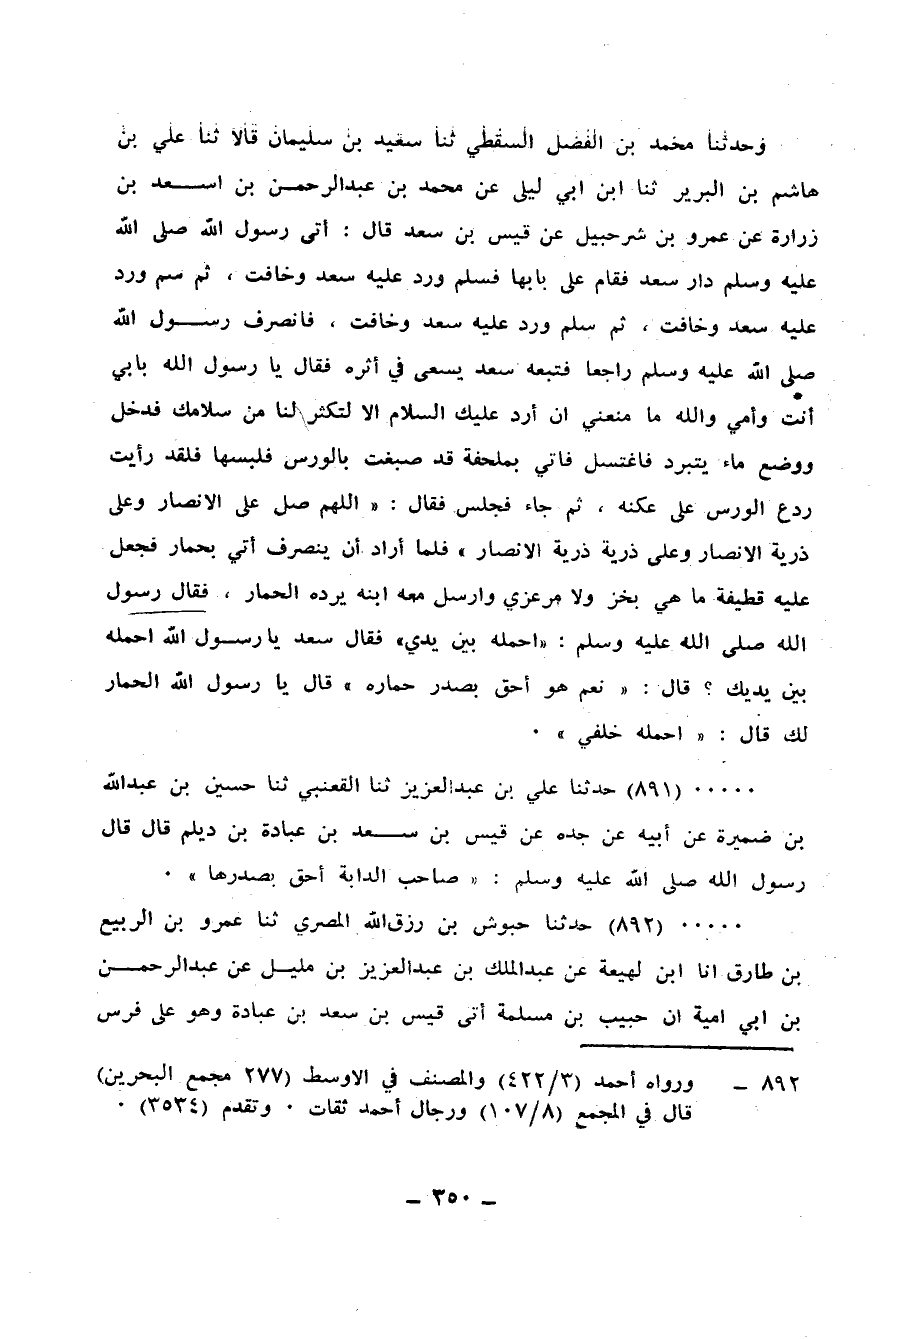 وحدثنا محمد بن الفضل السقطي ثنا سعيد بن سليمان قالا ثنا علي بن
هاشم بن البرير ثنا ابن ابي ليلى عن محمد بن عبدالرحمن بن اسعد بن
زرارة عن عمرو بن شرحبيل عن قيس بن سعد قال : أتى رسول الله صلى الله
عليه وسلم دار سعد فقام على بابها فسلم ورد عليه سعد وخافت ، ثم سم ورد
عليه سعد وخافت ، ثم سلم ورد عليه سعد وخافت ، فانصرف رسول الله
صلى الله عليه وسلم راجعا فتبعه سعد يسعى في أثره فقال يا رسول الله بابي
أنت وأمي والله ما منعني ان أرد عليك السلام الا لتكثر لنا من سلامك فدخل
ووضع ماء يتبرد فاغتسل فاتي بملحفة قد صبغت بالورس فلبسها فلقد رأيت
ردع الورس على عكنه ، ثم جاء فجلس فقال : « اللهم صل على الانصار وعلى
ذرية الانصار وعلى ذرية ذرية الانصار » فلما أراد أن ينصرف أتي بحمار فجعل
عليه قطيفة ما هي بخز ولا مرعزي وارسل معه ابنه يرده الحمار ، فقال رسول
الله صلى الله عليه وسلم : «احمله بين يدي» فقال سعد يا رسول الله احمله
بين يديك ؟ قال : « نعم هو أحق بصدر حماره » قال يا رسول الله الحمار
لك قال : « احمله خلفي » ٠
٠٠٠٠٠ (٨٩١) حدثنا علي بن عبدالعزيز ثنا القعنبي ثنا حسين بن عبدالله
بن ضميرة عن أبيه عن جده عن قيس بن سعد بن عبادة بن ديلم قال قال
رسول الله صلى الله عليه وسلم : « صاحب الدابة أحق بصدرها » ٠
٠٠٠٠٠ (٨٩٢) حدثنا حبوش بن رزق‌الله المصري ثنا عمرو بن الربيع
بن طارق انا ابن لهيعة عن عبدالملك بن عبدالعزيز بن مليل عن عبدالرحمن
بن ابي امية ان حبيب بن مسلمة أتى قيس بن سعد بن عبادة وهو على فرس
٨٩٢ – ورواه أحمد (٤٢٢/٣) والمصنف في الاوسط (٢٧٧ مجمع البحرين)
قال في المجمع (١٠٧/٨) ورجال أحمد ثقات ٠ وتقدم (٣٥٣٤) ٠
– ٣٥٠ –